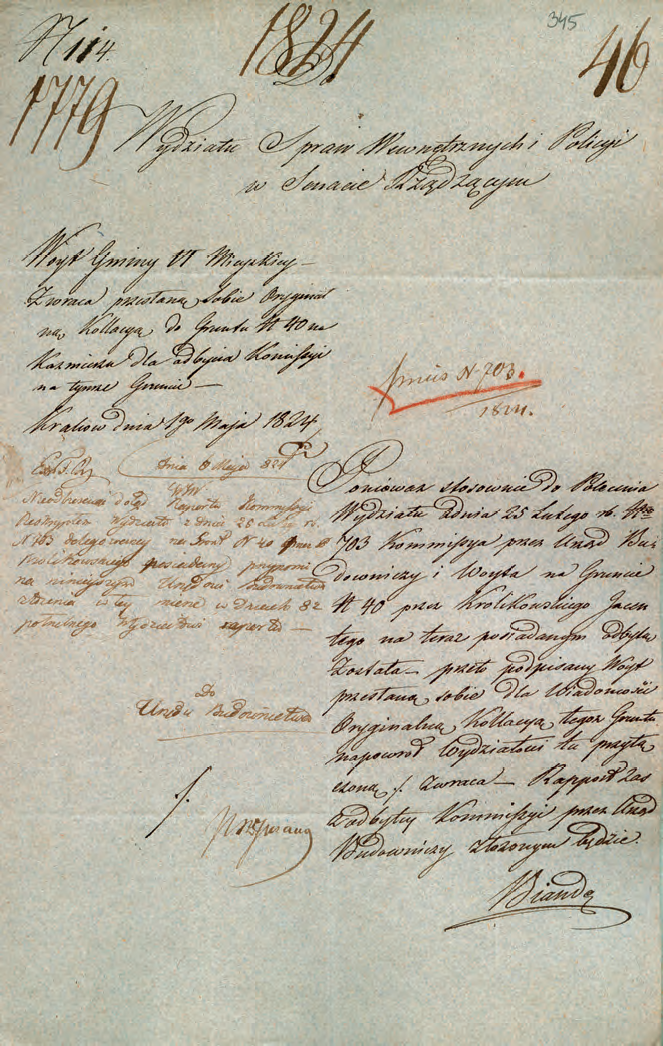 345
N 114.
1824
46
1779
Do
Wydziału Spraw Wewnętrznych i Policyi
w Senacie Rządzącym
Woyt Gminy VI Mieyskiey
Zwraca przesłaną sobie Orygnal
ną Kollacyą do Gruntu N 40 na
Kazmierzu dla odbycia Komissyi
na tymże Gruncie
Kraków dnia 19 Maja 1824
N 703.
1824.
Dnia 8 Maja 824
Nieodbierając dotąd Raportu Kommissyi
Wydziału z Dnia 25 Lutego r. b.
N 703 na Grunt N 40 przez
Krolikowskiego posiadany
na ninieyszym Urzędowi Budownictwa
w Dniach 8
Wydziałowi raportu
Do
Urzędu Budownictwa
Ponieważ stosownie do Polecenia
Wydziału z dnia 25 Lutego rb. Nro
703 Kommissya przez Urząd Bu
downiczy i Woyta na Gruncie
N 40 przez Krolikowskiego Jacen
tego na teraz posiadanym odbytą
Została – przeto podpisany Woyt
przesłaną sobie dla Wiadomości
Oryginalną Kollacyą tegoż Gruntu
napowrót Wydziałowi tu przyłą
czoną ./. zwraca – Rapport zaś
z odbytey Kommissyi przez Urząd
Budowniczy złożonym będzie.